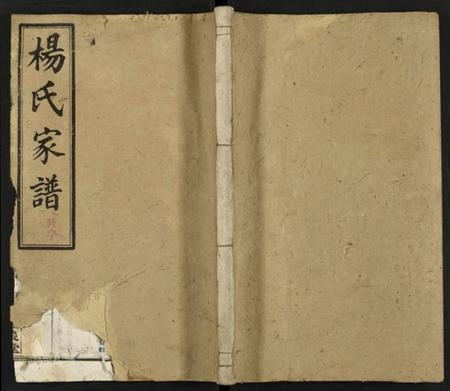 楊氏家譜
堂